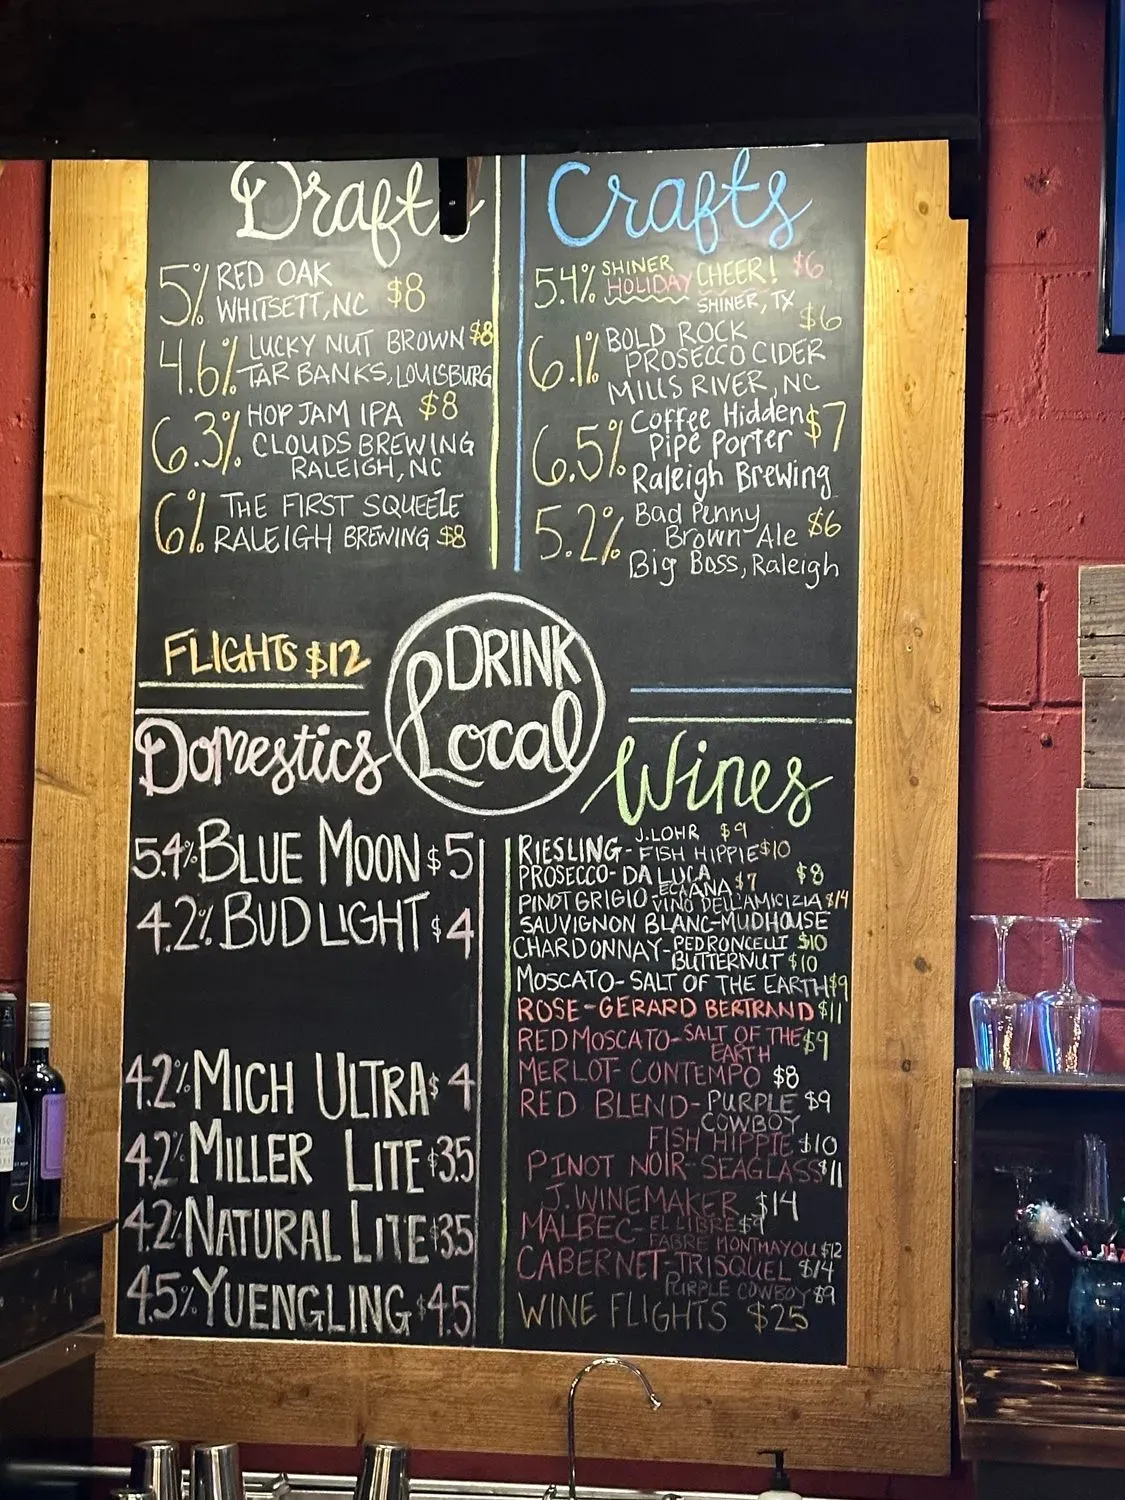 Drafts
5% RED OAK
WHITSETT, NC $8
4.6% LUCKY NUT BROWN $8
TAR BANKS, LOUISBURG
6.3% HOP JAM IPA $8
CLOUDS BREWING
RALEIGH, NC
6% THE FIRST SQUEEZE
RALEIGH BREWING $8
FLIGHTS $12
Crafts
5.4% SHINER
HOLIDAY CHEER! $6
SHINER, TX
$6
6.1% BOLD ROCK
PROSECCO CIDER
MILLS RIVER, NC
6.5% Coffee Hidden $7
Pipe Porter
Raleigh Brewing
5.2% Bad Penny
Brown Ale $6
Big Boss, Raleigh
DRINK
Local
Domestics
5.4% BLUE MOON $5
4.2% BUD LIGHT $4
4.2% MICH ULTRA $4
4.2% MILLER LITE $3.5
4.2% NATURAL LITE $3.5
4.5% YUENGLING $4.5
Wines
J. LOHR $9
RIESLING - FISH HIPPIE $10
PROSECCO - DA LUCA $8
PINOT GRIGIO - $7
VINO DELL'AMICIZIA $14
SAUVIGNON BLANC - MUDHOUSE
CHARDONNAY - PEDRONCELLI $10
BUTTERNUT $10
MOSCATO - SALT OF THE EARTH $9
ROSE - GERARD BERTRAND $11
RED MOSCATO - SALT OF THE $9
EARTH
MERLOT - CONTEMPO $8
RED BLEND - PURPLE $9
COWBOY
FISH HIPPIE $10
PINOT NOIR - SEAGLASS $11
J. WINEMAKER $14
MALBEC - EL LIBRE $9
FABRE MONTMAYOU $12
CABERNET - TRISQUEL $14
PURPLE COWBOY $9
WINE FLIGHTS $25